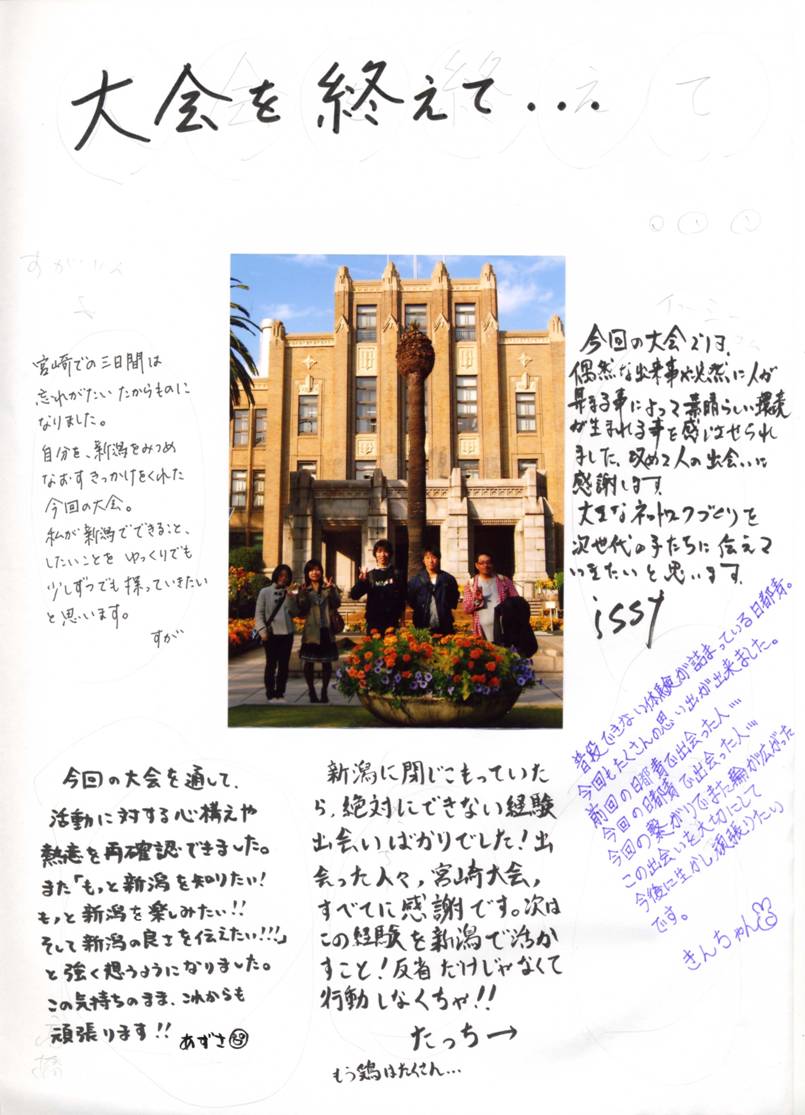 大会を終えて...
宮崎での三日間は
忘れがたいたからものに
なりました。
自分を、新潟をみつめ
なおすきっかけをくれた
今回の大会。
私が新潟でできること、
したいことをゆっくりでも
少しずつでも探っていきたい
と思います。
すが
今回の大会では、
偶然な出来事や突然に人が
集まる事によって素晴らしい環境
が生まれる事を感じさせられ
ました、改めて人の出会いに
感謝します。
大きなネットワークづくりを
次世代の子たちに伝えて
いきたいと思います。
issy
普段できない体験が詰まっている日都青。
今回もたくさんの思い出が出来ました。
前回の日都青で出会った人…
今回の日都青で出会った人…
今回の繋がりでまた輪が広がった
この出会いを大切にして
今後に生かし頑張りたい
です。
きんちゃん
今回の大会を通して、
活動に対する心構えや
熱意を再確認できました。
また「もっと新潟を知りたい!
もっと新潟を楽しみたい!!
そして新潟の良さを伝えたい!!!」
と強く想うようになりました。
この気持ちのまま、これからも
頑張ります!!
あずさ
新潟に閉じこもっていた
ら、絶対にできない経験
出会いばかりでした!出
会った人々,宮崎大会,
すべてに感謝です。次は
この経験を新潟で活か
すこと!反省だけじゃなくて
行動しなくちゃ!!
たっち→
もう鶏はたくさん...